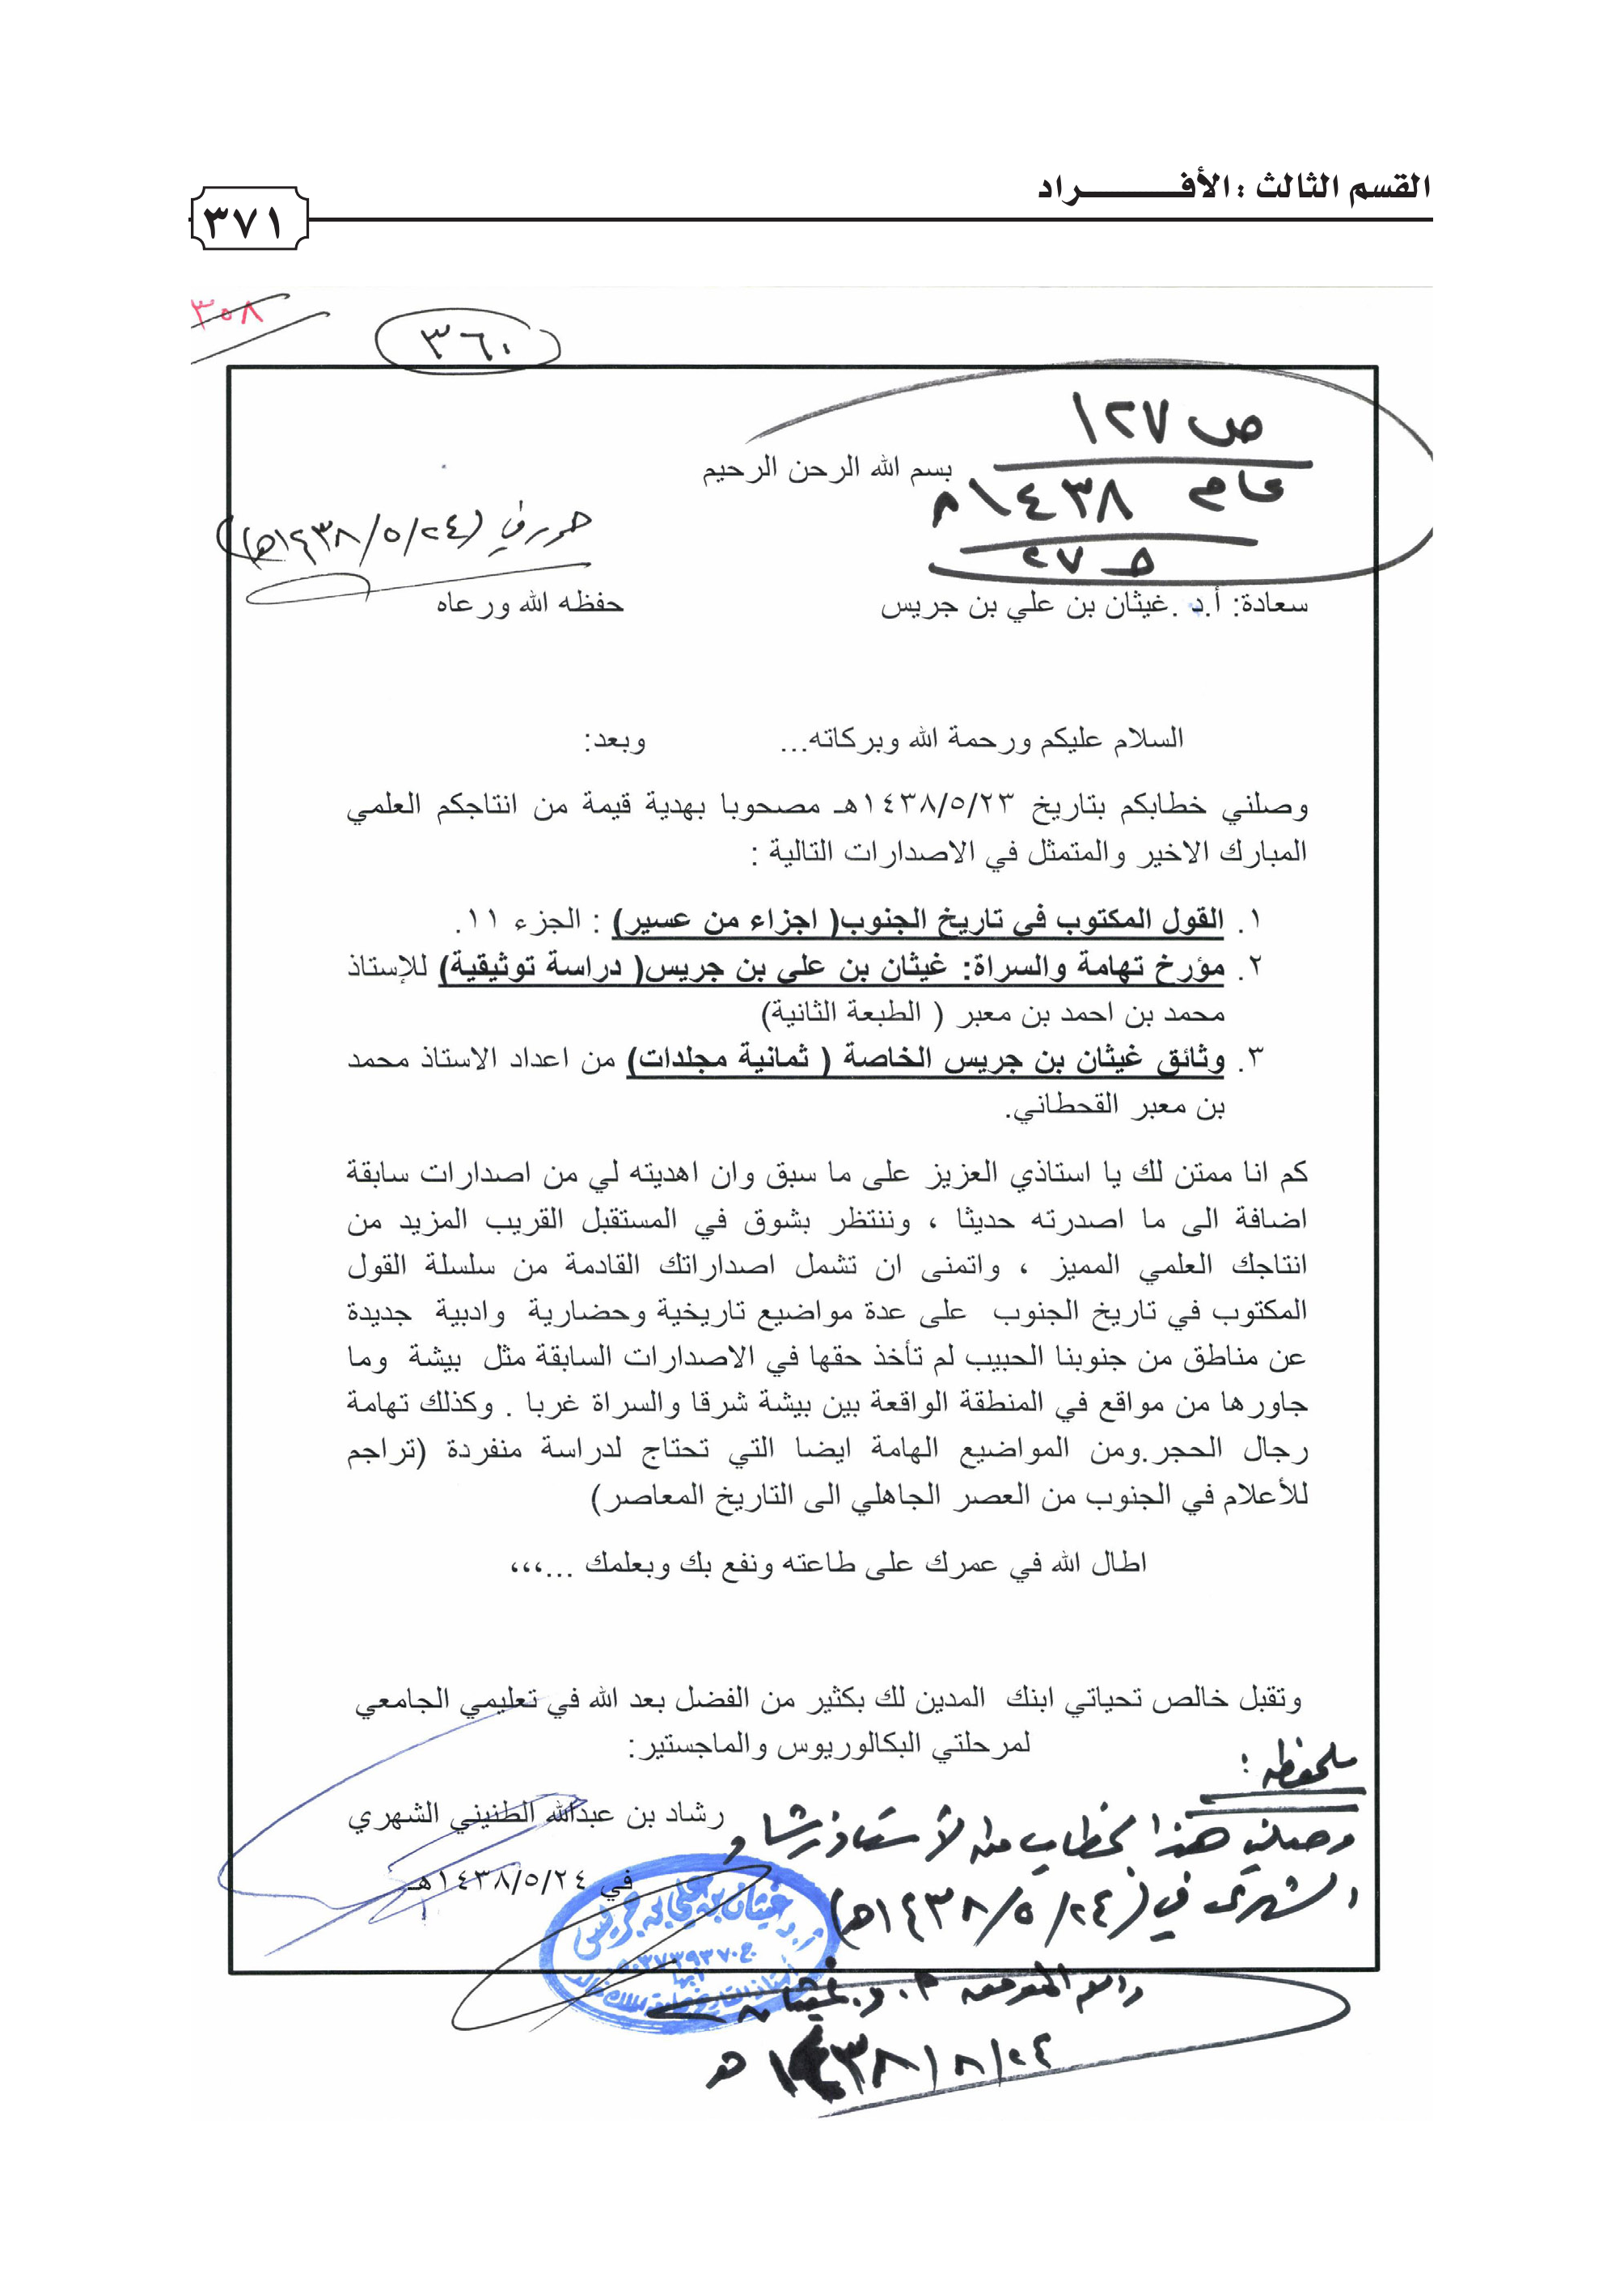 القسم الثالث : الأفـــــــراد
٣٧١
٣٥٨
٣٦٠
ص ١٢٧
بسم الله الرحن الرحيم
عام ١٤٣٨هـ
حرر في (١٤٣٨/٥/٢٤هـ)
صـ ٢٧
سعادة: أ.د .غيثان بن علي بن جريس حفظه الله ورعاه
السلام عليكم ورحمة الله وبركاته... وبعد:
وصلني خطابكم بتاريخ ١٤٣٨/٥/٢٣هـ مصحوبا بهدية قيمة من انتاجكم العلمي
المبارك الاخير والمتمثل في الاصدارات التالية :
١. القول المكتوب في تاريخ الجنوب( اجزاء من عسير) : الجزء ١١.
٢. مؤرخ تهامة والسراة: غيثان بن علي بن جريس( دراسة توثيقية) للإستاذ
محمد بن احمد بن معبر ( الطبعة الثانية)
٣. وثائق غيثان بن جريس الخاصة ( ثمانية مجلدات) من اعداد الاستاذ محمد
بن معبر القحطاني.
كم انا ممتن لك يا استاذي العزيز على ما سبق وان اهديته لي من اصدارات سابقة
اضافة الى ما اصدرته حديثا ، وننتظر بشوق في المستقبل القريب المزيد من
انتاجك العلمي المميز ، واتمنى ان تشمل اصداراتك القادمة من سلسلة القول
المكتوب في تاريخ الجنوب على عدة مواضيع تاريخية وحضارية وادبية جديدة
عن مناطق من جنوبنا الحبيب لم تأخذ حقها في الاصدارات السابقة مثل بيشة وما
جاورها من مواقع في المنطقة الواقعة بين بيشة شرقا والسراة غربا . وكذلك تهامة
رجال الحجر.ومن المواضيع الهامة ايضا التي تحتاج لدراسة منفردة (تراجم
للأعلام في الجنوب من العصر الجاهلي الى التاريخ المعاصر)
اطال الله في عمرك على طاعته ونفع بك وبعلمك ...،،،
وتقبل خالص تحياتي ابنك المدين لك بكثير من الفضل بعد الله في تعليمي الجامعي
لمرحلتي البكالوريوس والماجستير:
ملحوظه :
رشاد بن عبدالله الطنيني الشهري
وصلني هذا الخطاب من الأستاذ رشاد
في ١٤٣٨/٥/٢٤هـ
الشهري في (١٤٣٨/٥/٢٤هـ)
أ.د غيثان بن علي بن جريس
١٤٣٨/٨/٢٤ هـ